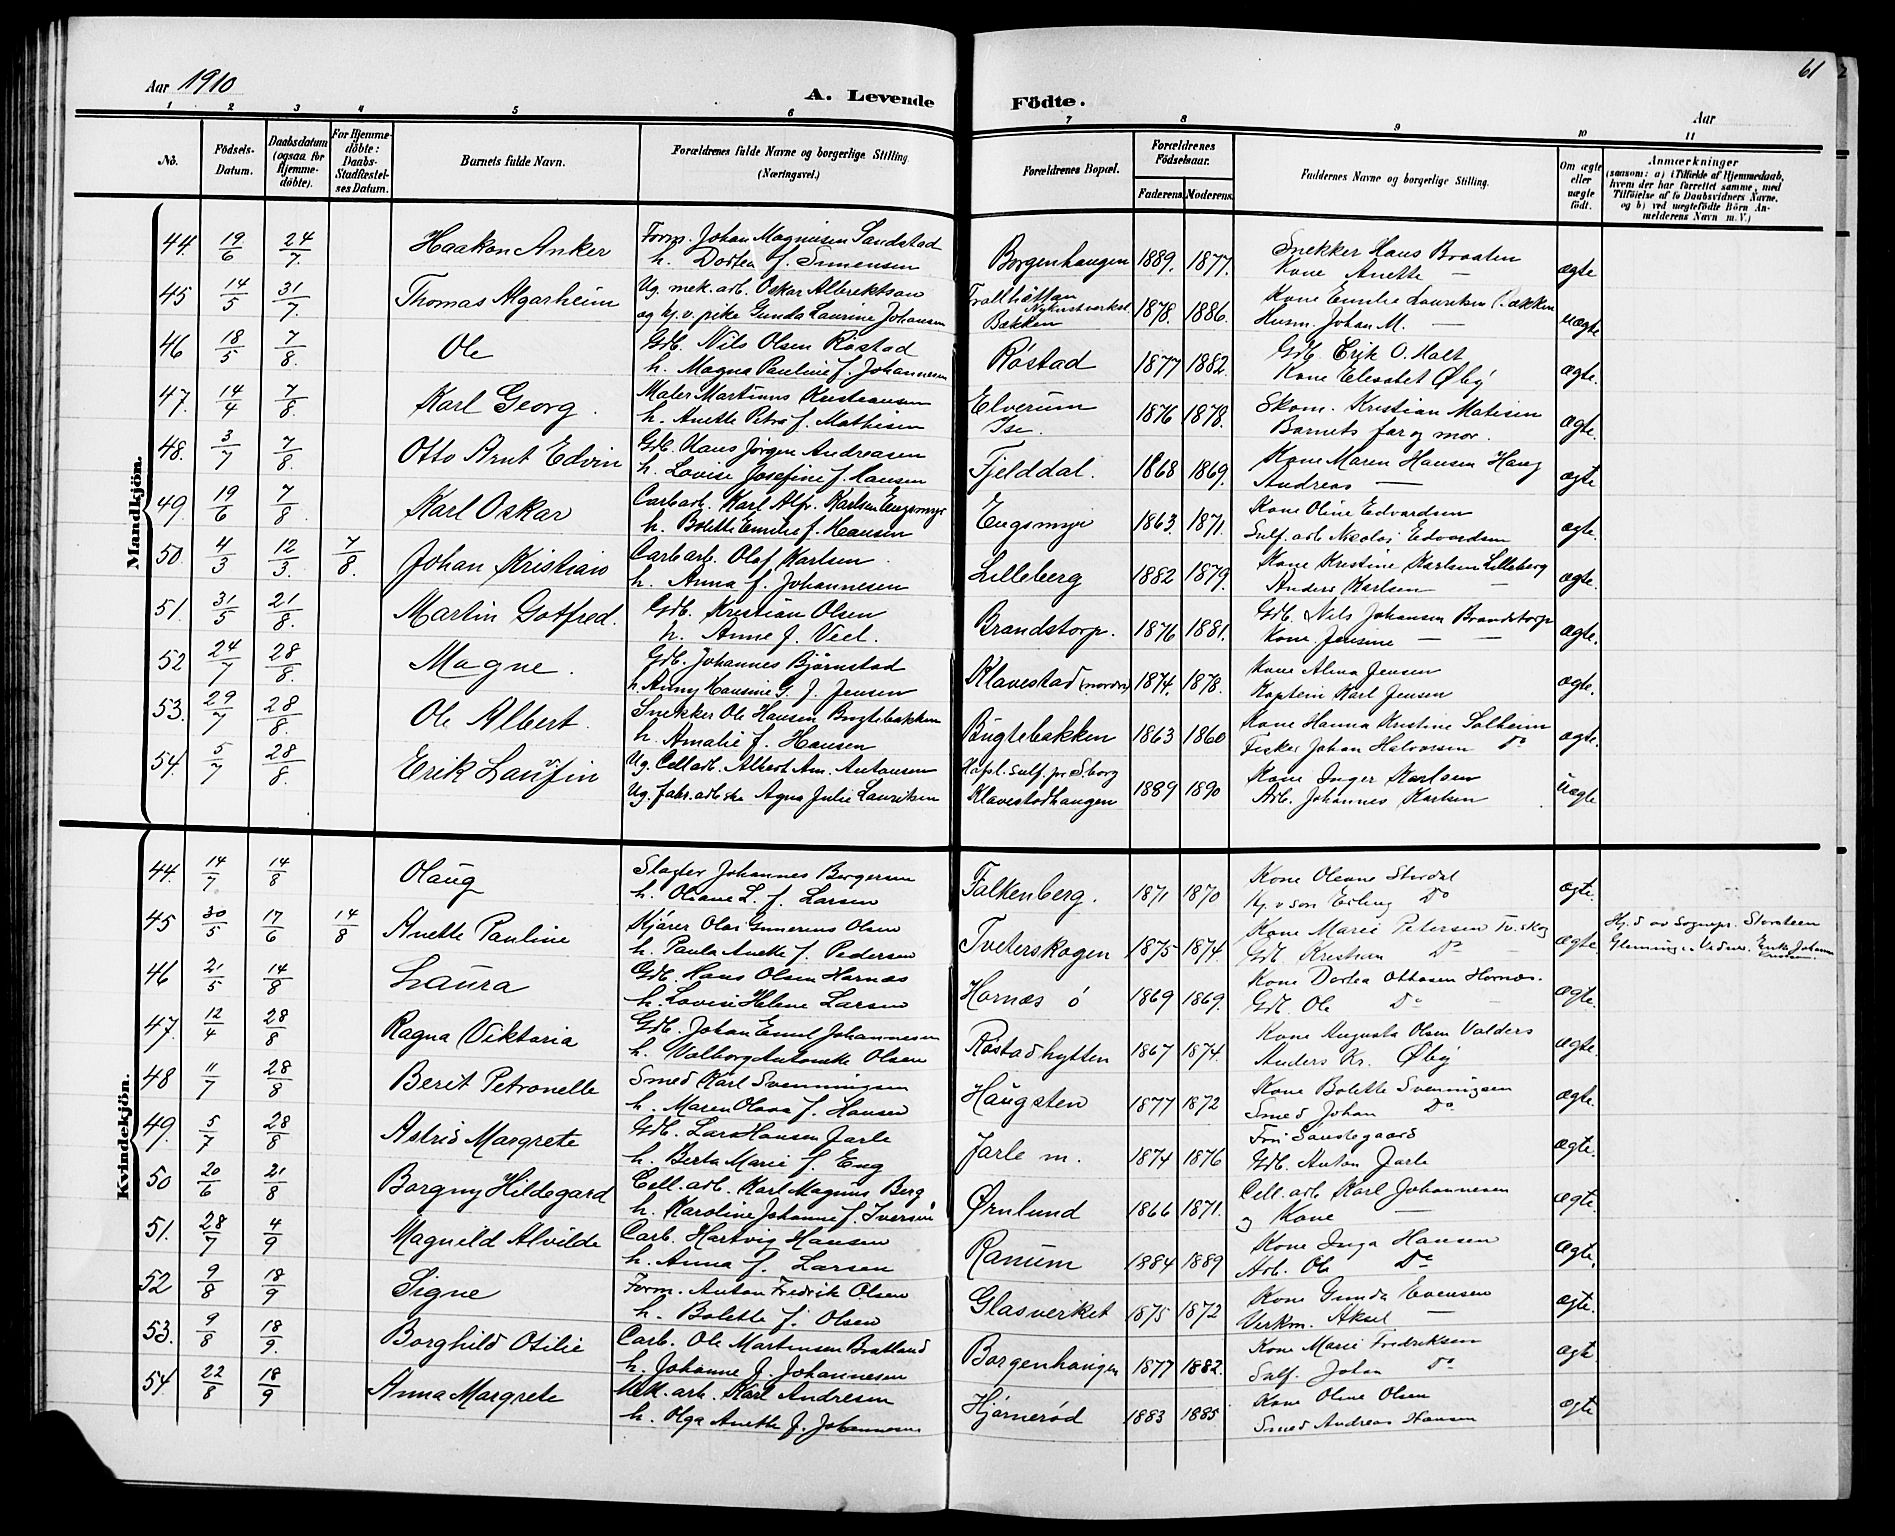 Aar 1910
A. Levende Födte.
Aar
61
1 2 3 4 5 6 7 8 9 10 11
No.
Födsels-Datum.
Daabsdatum (ogsaa for Hjemme-döbte).
For Hjemme-döbte: Daabs-Stadfæstelses Datum.
Barnets fulde Navn.
Forældrenes fulde Navne og borgerlige Stilling. (Næringsvei.)
Forældrenes Bopæl.
Forældrenes Födselsaar.
Faderens. Moderens.
Faddernes Navne og borgerlige Stilling.
Om ægte eller uægte födt.
Anmærkninger
(saasom: a) i Tilfælde af Hjemmedaab, hvem der har forrettet samme, med Tilföielse af to Daabsvidners Navne, og b) ved uægtefödte Börn Anmelderens Navn m. V.)
Mandkjön.
44. 19/6 24/7. Haakon Anker Form. Johan Magnusen Sandstad Borgenhaugen 1889. 1877. Snekker Hans Braaten ægte
h. Dortea f. Simensen Kone Anette —
45 14/5 31/7. Thomas Algarheim Ug. mek. arb. Oskar Albrektsen Trollhättan 1878. 1886. Kone Emilie Bakken uægte
og hj.v. pike Gunda Laurine Johansen Bakken Husm. Johan M. —
46 18/5 7/8. Ole Gdb. Nils Olsen Röstad Röstad 1877 1882. Gdb. Erik O. Holt ægte.
h. Magna Pauline f. Johannesen Kone Elisabet Øby
47. 14/4 7/8. Karl Georg. Maler Martinus Kristiansen Elverum 1876 1878. Skom. Kristian Matisen ægte.
h. Anette Petra f. Mathisen Ise. Barnets far og mor.
48. 3/7 7/8. Otto Arnt Edvin Gdb. Hans Jörgen Andreasen Fjelddal. 1868 1869. Kone Maren Hansen Haug ægte
h. Lovise Josefine f. Hansen Andreas —
49. 19/6 7/8. Karl Oskar Carb arb. Karl Alfr. Karlsen Engsmyr Engsmyr 1863. 1871. Kone Oline Edvardsen ægte.
h. Bolette Emilie f. Hansen Sulf. arb Nicolai Edvardsen
50. 4/3 12/3. 7/8. Johan Kristian Carb arb. Olaf Karlsen Lilleberg 1882 1879. Kone Kristine Karlsen Lilleberg ægte.
h. Anna f. Johannesen Anders Karlsen —
51. 31/5 21/8. Martin Gotfred. Gdb. Kristian Olsen Brandstorp. 1876 1881. Gdb. Nils Johansen Brandstorp ægte.
h. Anne f. Viel. Kone Jensine — —
52 24/7 28/8. Magne. Gdb. Johannes Björnstad Klavestad (nordre) 1874. 1878. Kone Alma Jensen ægte.
h. Anny Hansine G. f. Jensen Kaptein Karl Jensen
53. 29/7 28/8. Ole Albert. Snekker Ole Hansen Bugtebakken Bugtebakken 1863 1860 Kone Hanna Kristine Solheim ægte.
h. Amalie f. Hansen Fisker Johan Halvorsen Do
54. 5/7 28/8. Erik Laufin Ug. Cell arb. Albert Am. Antonsen Hafsl. Sulf. pr S.borg 1889 1890 Kone Inger Karlsen uægte
Ug. fabr. arb.ske Agnes Julie Lauritsen Klavestadhaugen Arb. Johannes Karlsen
Kvindekjön.
44. 14/7 14/8 Olaug Slagter Johannes Borgersen Falkenberg. 1871 1870 Kone Oleane Stordal ægte.
h. Oliane L. f. Larsen Hj. v sön Erling Do
45 30/5 17/6 14/8 Anette Pauline Kjörer Olai Gunerius Olsen Tveterskogen 1875 1874 Kone Marie Petersen Tv.skog ægte. Hj.d av Sognepr. Storsteen
h. Paula Anette f. Pedersen Gdb. Kristian Do Glemminge
46 21/5 14/8 Laura Gdb. Hans Olsen Hornæs Hornæs ö 1869 1869. Kone Dortea Ottosen Hornæs. ægte.
h. Lovise Helene Larsen Gdb. Ole Do
47. 12/4 28/8 Ragna Viktoria Gdb. Johan Emil Johannesen Röstadhytten 1867 1874. Kone Augusta Olsen Valders ægte.
h. Valborg Antonette Olsen Anders Kr. Øby
48 11/7 28/8 Berit Petronelle Smed Karl Svenningsen Haugsten 1877 1872 Kone Bolette Svenningsen ægte.
h. Maren Olava f. Hansen Smed Johan Do
49. 5/7 28/8 Astrid Margrete Gdb. Lars Hansen Jarle Jarle m. 1874 1876 Frü Sandegaard ægte.
h. Berta Marie f. Eng Gdb. Anton Jarle
50 20/6 21/8 Borgny Hildegard Cell. arb. Karl Magnus Berg Ørnlund 1866 1871. Cell. arb Karl Johannesen ægte.
h. Karoline Johanne f. Iversen og Kone —
51. 28/7 4/9 Magnild Alvilde Carb. Hartvig Hansen Ranum 1884 1889 Kone Inga Hansen ægte.
h. Anna f. Larsen Arb. Ole Do
52 9/8 18/9 Signe Form. Anton Fredrik Olsen Glasverket 1875 1872 Kone Gunda Evensen ægte.
h. Bolette f. Olsen Verkm. Aksel —
53. 9/8 18/9. Borghild Otilie Carb. Ole Martinsen Bratland Borgenhaugen 1877 1882. Kone Marie Fredriksen ægte
h. Johanne f. Johannesen Sulf. Johan Do
54 22/8 18/9 Anna Margrete Mek. arb. Karl Andresen Hjörneröd 1883 1885 Kone Oline Olsen ægte
h. Olga Anette f. Johannesen Smed Andreas Hansen